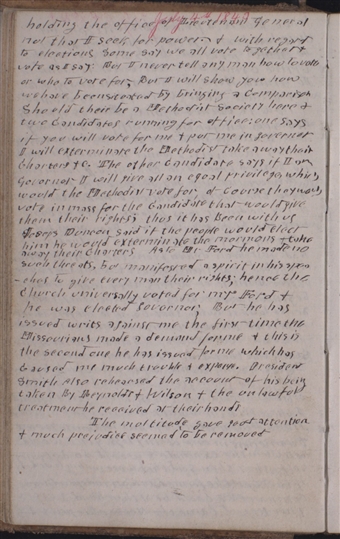 July 4th 1843
holding the office of Lieutenant General
not that I seek for power. & with regard
to elections some say we all vote together &
vote as I say. But I never tell any man how to vote
or who to vote for, But I will show you how
we have been situated by bringing a Comparison
Should there be a Methodist society here &
two Candidates running for office, one says
if you will vote for me & put me in governor
I will exterminate the Methodist take away their
Charters &c. The other Candidate says if I am
Governor I will give all an equal privilege, which
would the Methodist vote for, of Course they would
vote in mass for the Candidate that would give
them their rights thus it has been with us
Joseph Duncan said if the people would elect
him he would exterminate the mormons & take
away their Charters As to Mr Ford he made no
such threats, but manifested a spirit in his spee
-ches to give every man their rights; hence the
Church universally voted for mr Ford &
he was elected Governor, But he has
issued writs against me the first time the
Missourians made a demand for me & this is
the second one he has issued for me which has
Caused me much trouble & expense. President
Smith also rehearsed the account of his being
taken By Reynolds & Wilson & the unlawful
treatment he received at their hands
The multitude gave good attention
& much prejudice seemed to be removed